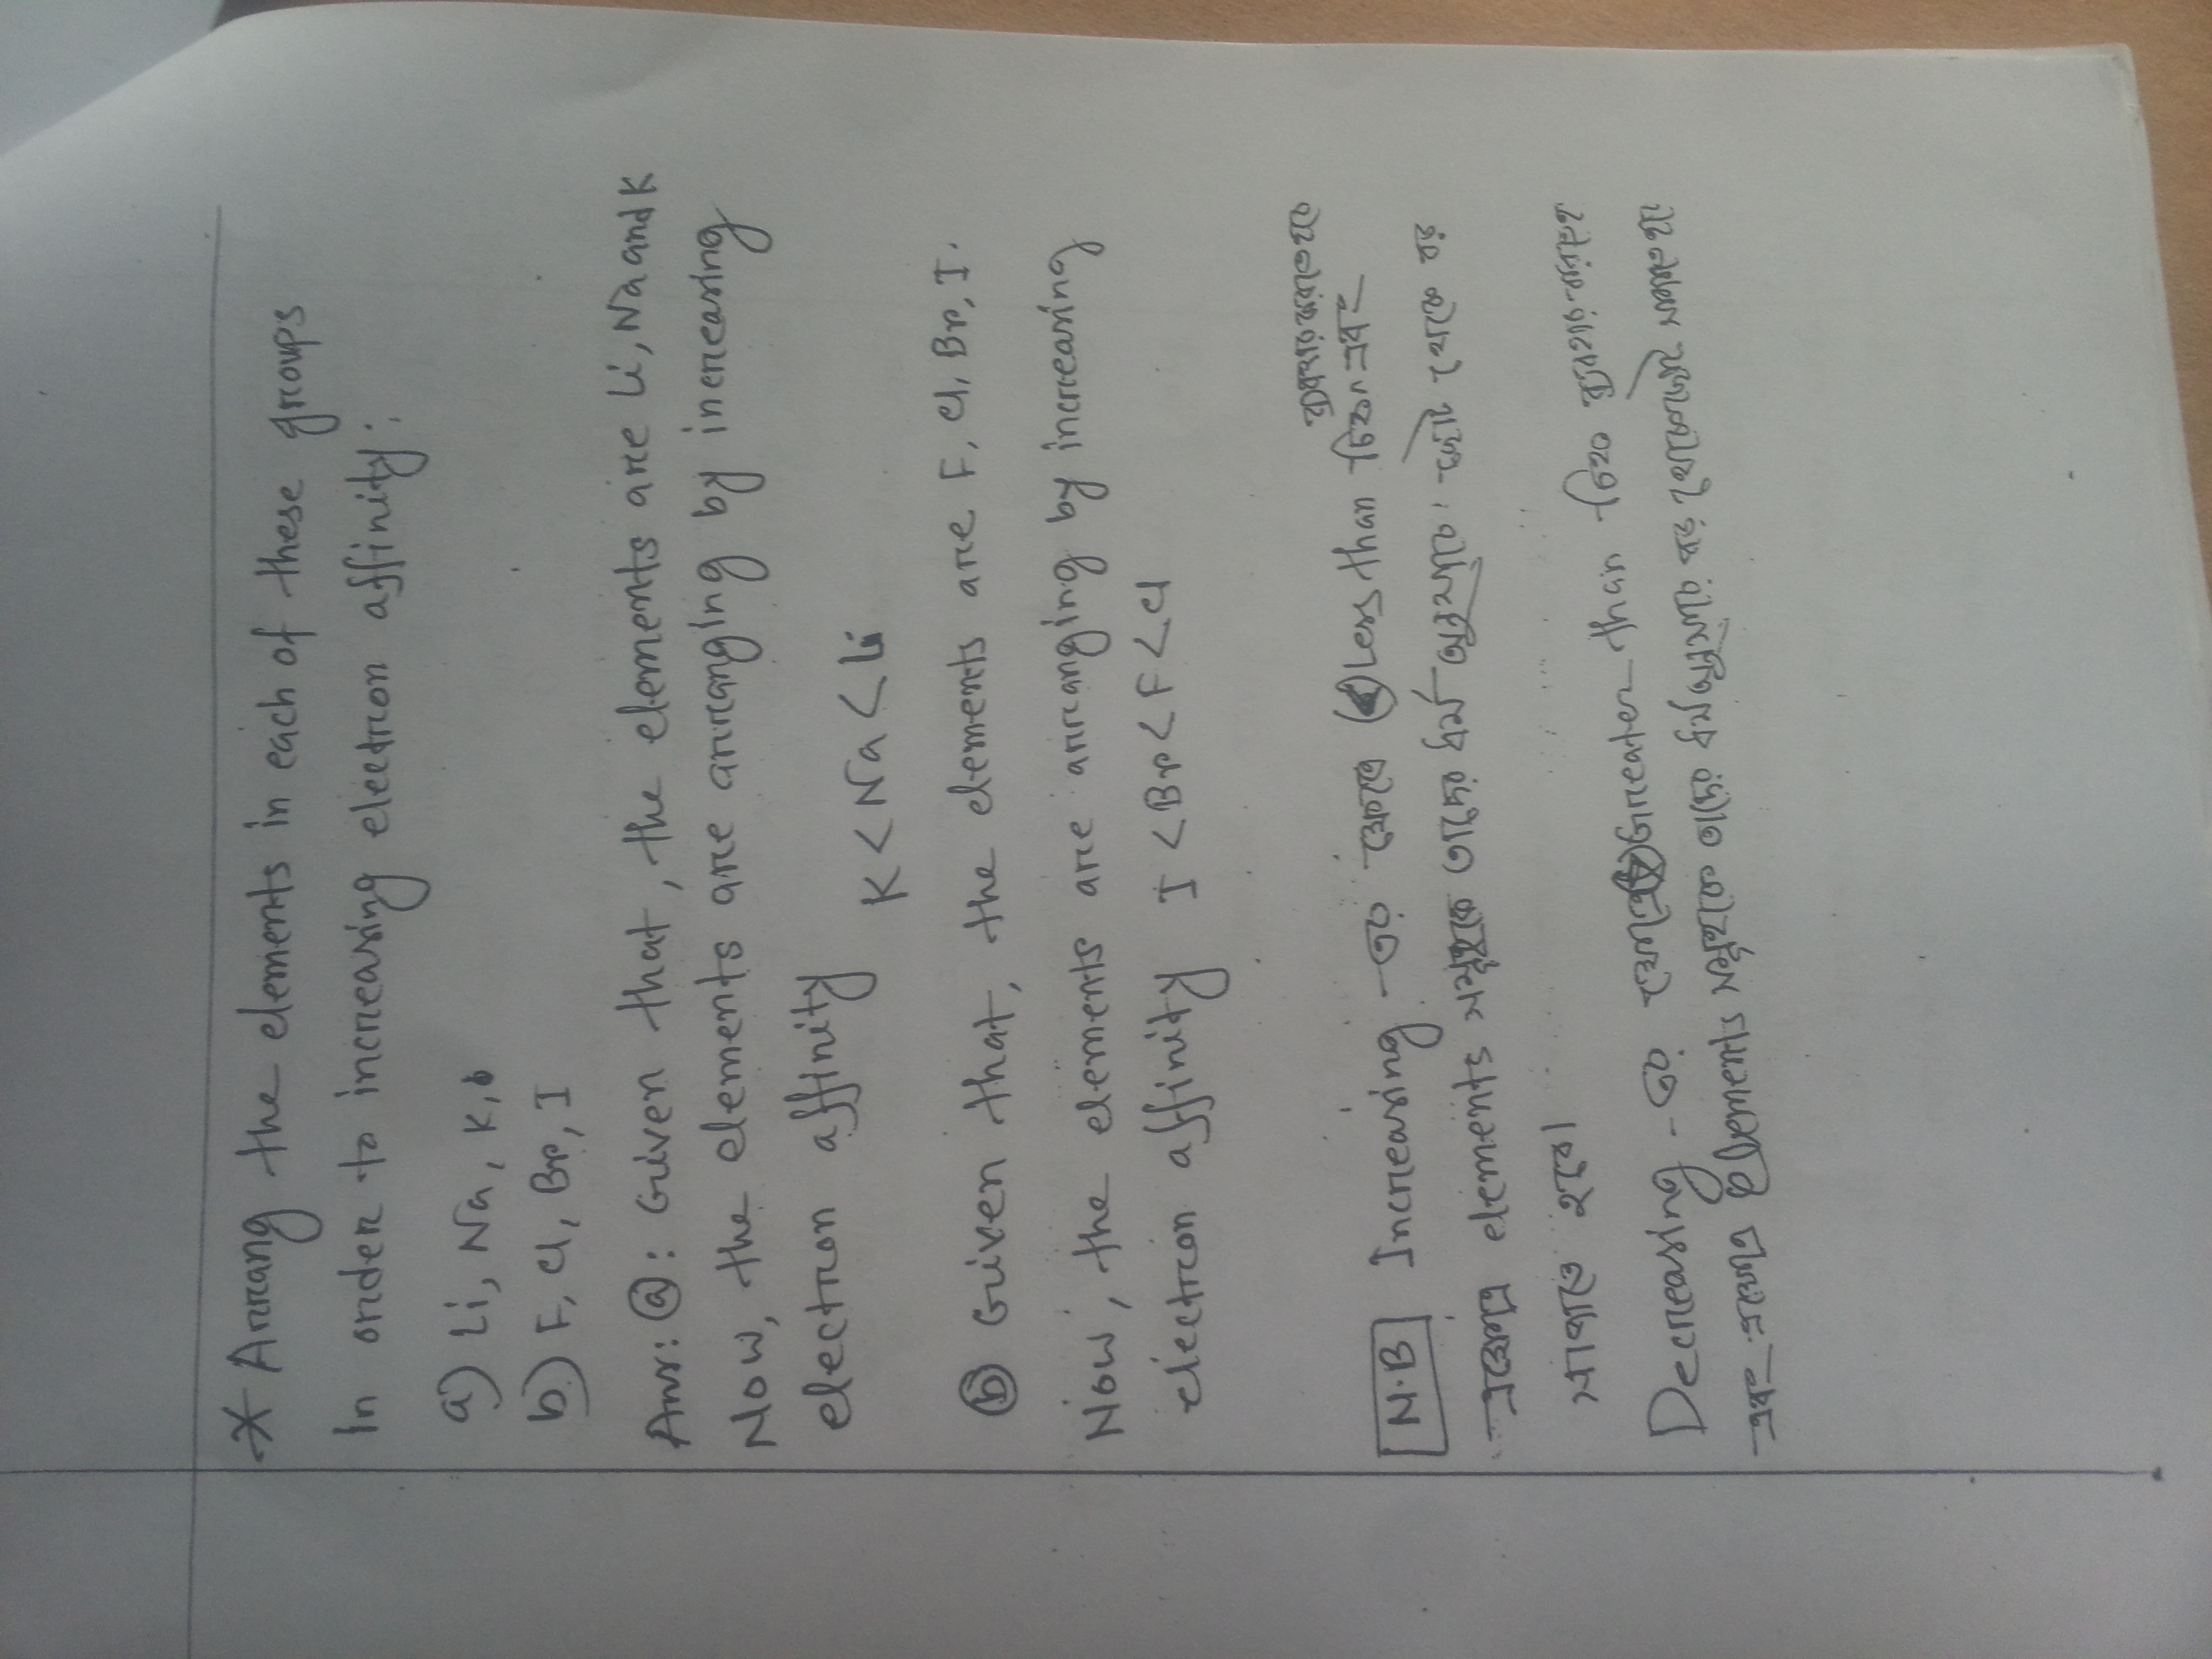 * Arrang the elements in each of these groups
In order to increasing electron affinity:
a) Li, Na, K,
b) F, Cl, Br, I
Ans: ⓐ: Given that, the elements are Li, Na and K
Now, the elements are arranging by increasing
electron affinity
K < Na < Li
ⓑ Given that, the elements are F, Cl, Br, I.
Now, the elements are arranging by increasing
electron affinity I < Br < F < Cl
ব্যবহার করতে হবে
N.B Increasing -এর ক্ষেত্রে (<) Less than চিহ্ন এবং
এক্ষেত্রে elements সমূহকে তাদের ধর্ম অনুসারে ছোট থেকে বড়
সাজাতে হবে।
Decreasing -এর ক্ষেত্রে (>) Greater than চিহ্ন ব্যবহার করতে হ
এবং এক্ষেত্রে Elements সমূহকে তাদের ধর্ম অনুসারে বড় থেকে ছোট সাজাতে হবে